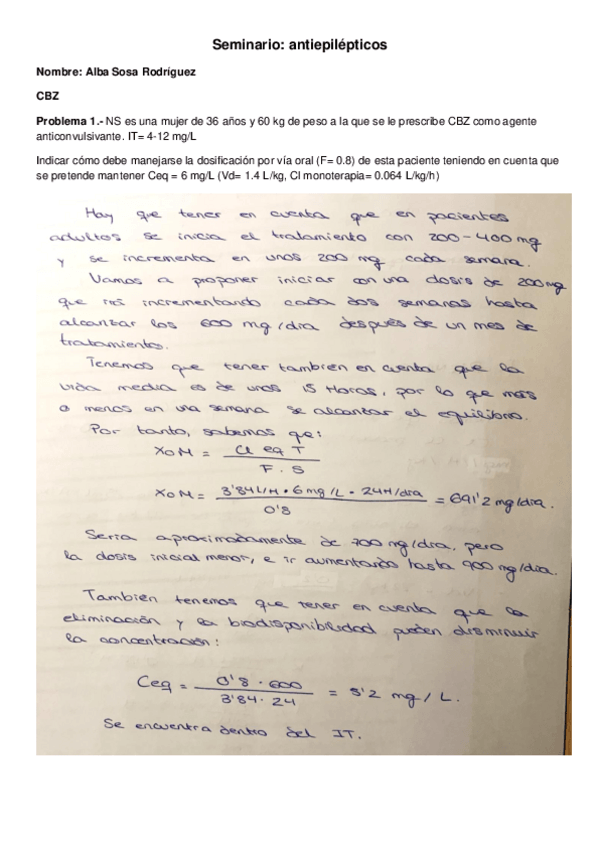 Seminario: antiepilépticos
Nombre: Alba Sosa Rodríguez
CBZ
Problema 1.- NS es una mujer de 36 años y 60 kg de peso a la que se le prescribe CBZ como agente
anticonvulsivante. IT= 4-12 mg/L
Indicar cómo debe manejarse la dosificación por vía oral (F= 0.8) de esta paciente teniendo en cuenta que
se pretende mantener Ceq = 6 mg/L (Vd= 1.4 L/kg, Cl monoterapia= 0.064 L/kg/h)
Hay que tener en cuenta que en pacientes
adultos se inicia el tratamiento con 200-400 mg
y se incrementa en unos 200 mg cada semana.
Vamos a proponer iniciar con una dosis de 200mg
que irá incrementando cada dos semanas hasta
alcanzar los 600 mg/día después de un mes de
tratamiento.
Tenemos que tener también en cuenta que la
vida media es de unos 15 Horas, por lo que más
o menos en una semana se alcanzar el equilibrio.
Por tanto, sabemos que:
XoM = Cl eq T / F . S
XoM = 3'84 L/H • 6 mg/L • 24H/día / 0'8 = 691'2 mg/día.
Sería aproximadamente de 700 mg/día, pero
la dosis inicial menor, e ir aumentando hasta 900 mg/día.
También tenemos que tener en cuenta que la
eliminación y la biodisponibilidad pueden disminuir
la concentración:
Ceq = 0'8 . 600 / 3'84 . 24 = 5'2 mg/L.
Se encuentra dentro del IT.